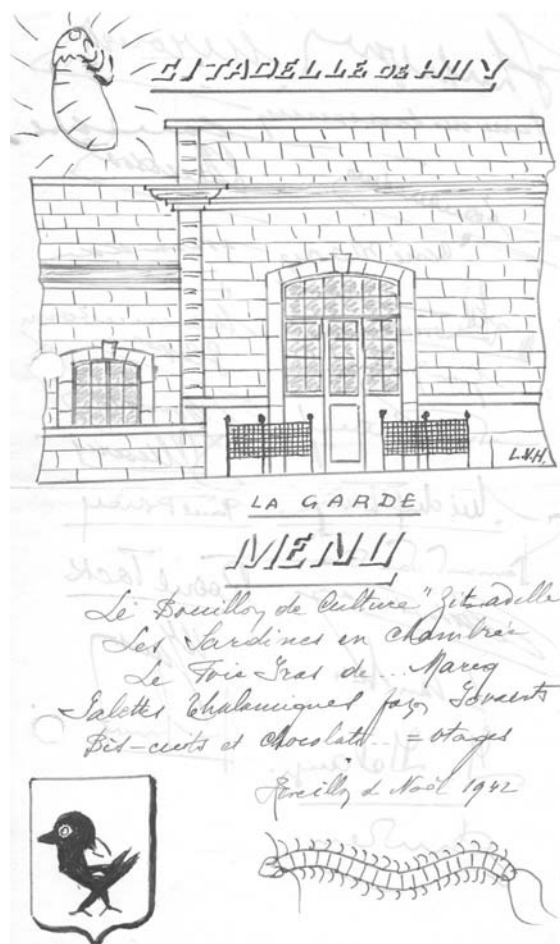 CITADELLE DE HUY
L.V.H.
LA GARDE
MENU
Le Bouillon de Culture "Zitadelle
Les Sardines en chambrée
Le Foie Gras de... Marcq
Galettes Thalamiques façon Govaerts
Bis-cuits et chocolats... = otages
Réveillon de Noël 1942